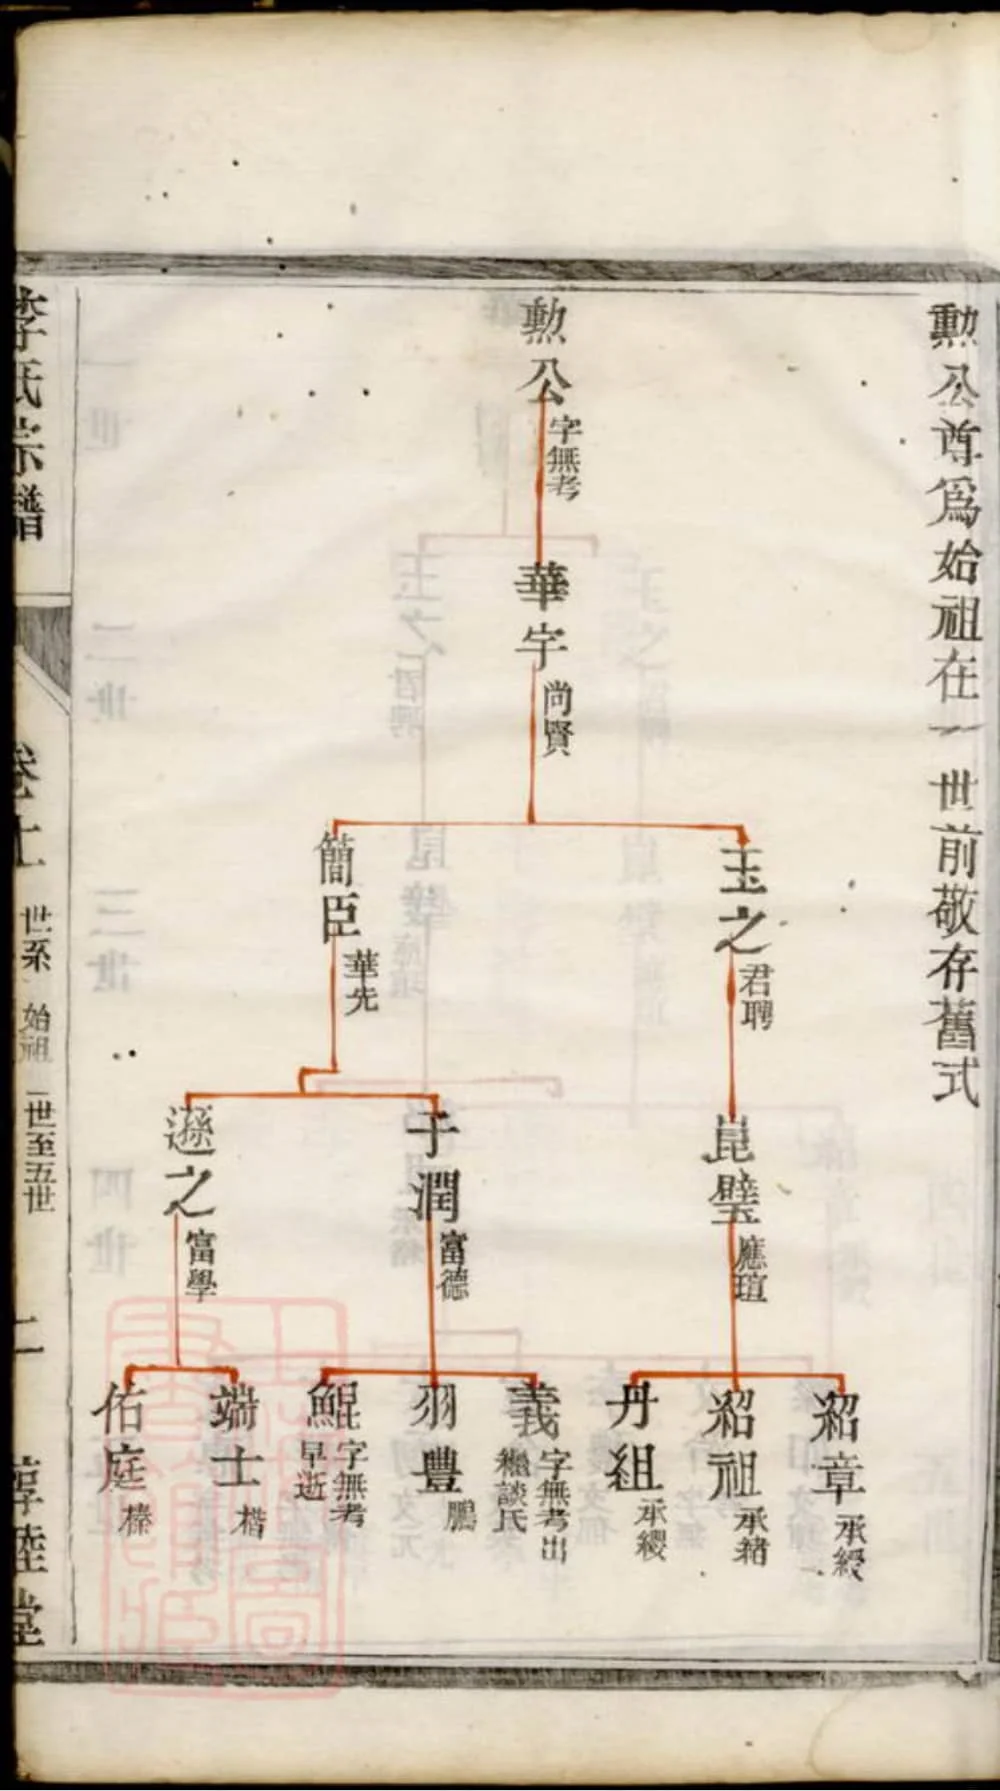 勲公尊爲始祖在一世前敬存舊式
勲公 字無考
華宇 尚賢
玉之 君聘
簡臣 華先
崑璧 應瑄
于潤 富德
遜之 富學
紹章 承綬
紹祖 承緒
丹組 承纓
義 字無考出繼談氏
羽豐 鵬
鯤 字無考早逝
端士 楷
佑庭 榛
李氏宗譜
卷十 世系 始祖 一世至五世
二
惇睦堂